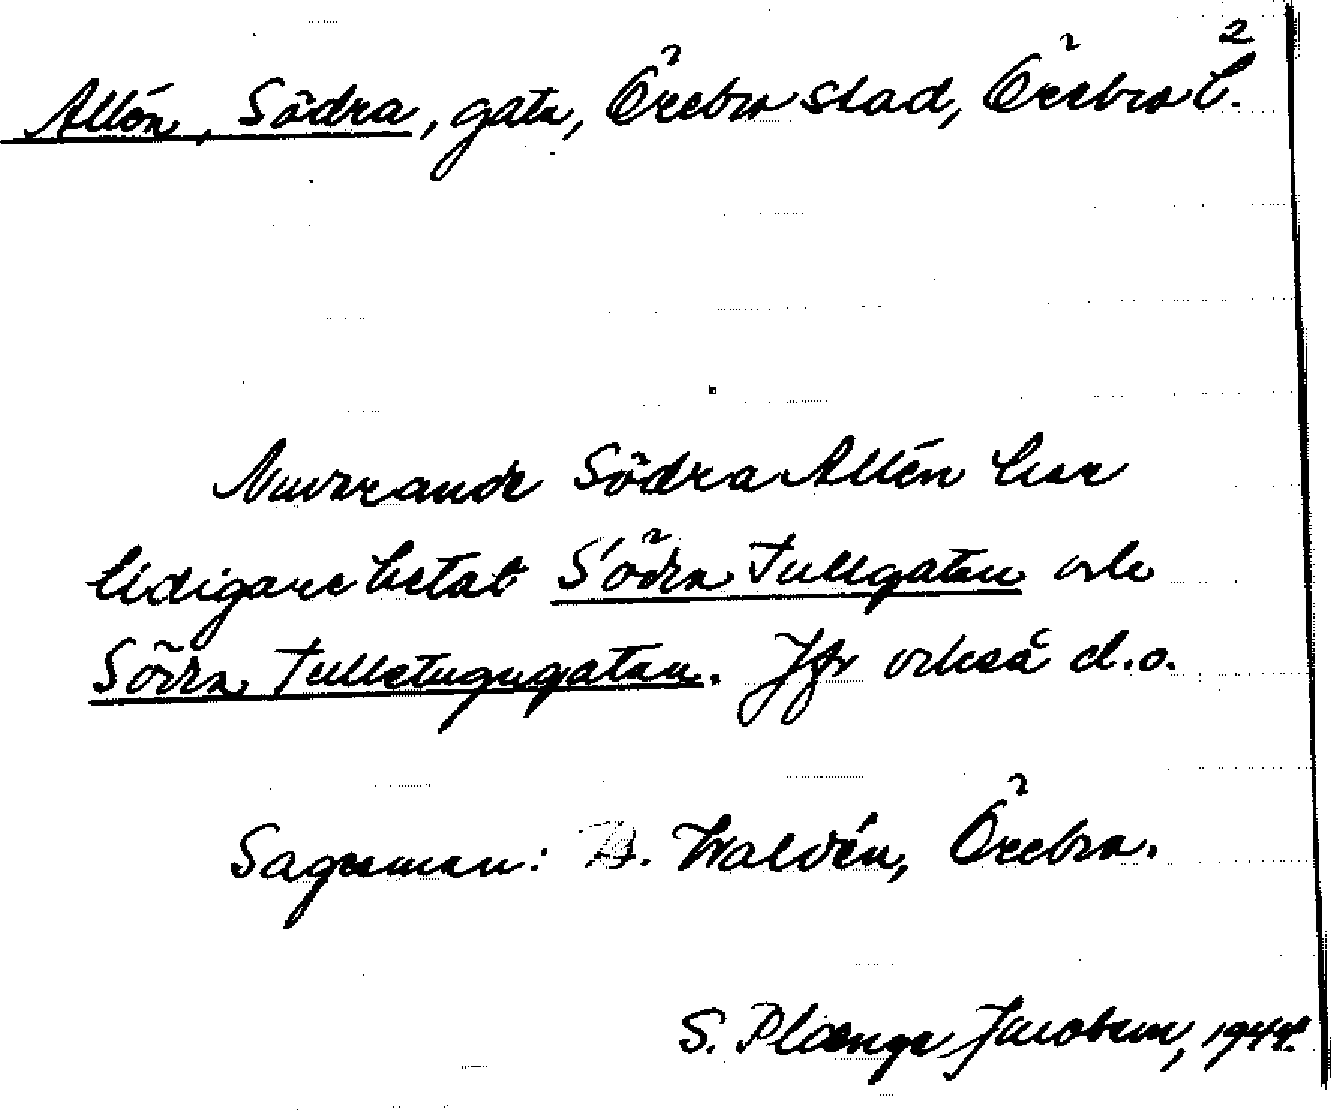 Allén, Södra, gata, Örebro stad, Örebro l.
2
Nuvarande Södra Allén har
tidigare hetat Södra Tullgatan och
Södra Tullstugugatan. Jfr också d.o.
Sagesman: B. Waldén, Örebro.
S. Plænge Jacobson, 1944.